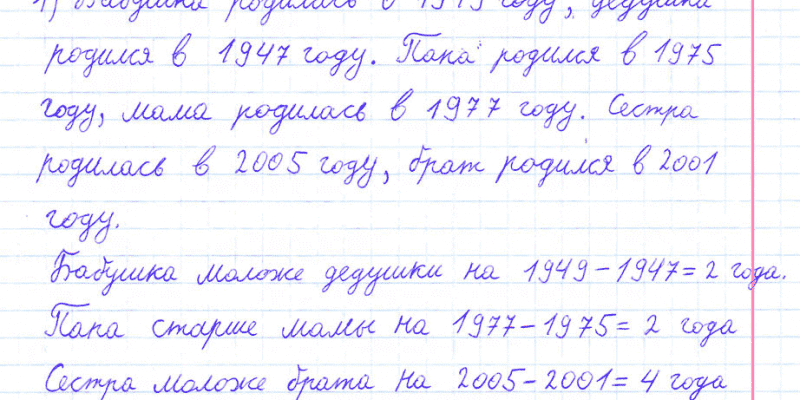 1) Бабушка родилась в 1949 году, дедушка
родился в 1947 году. Папа родился в 1975
году, мама родилась в 1977 году. Сестра
родилась в 2005 году, брат родился в 2001
году.
Бабушка моложе дедушки на 1949-1947=2 года.
Папа старше мамы на 1977-1975=2 года
Сестра моложе брата на 2005-2001=4 года